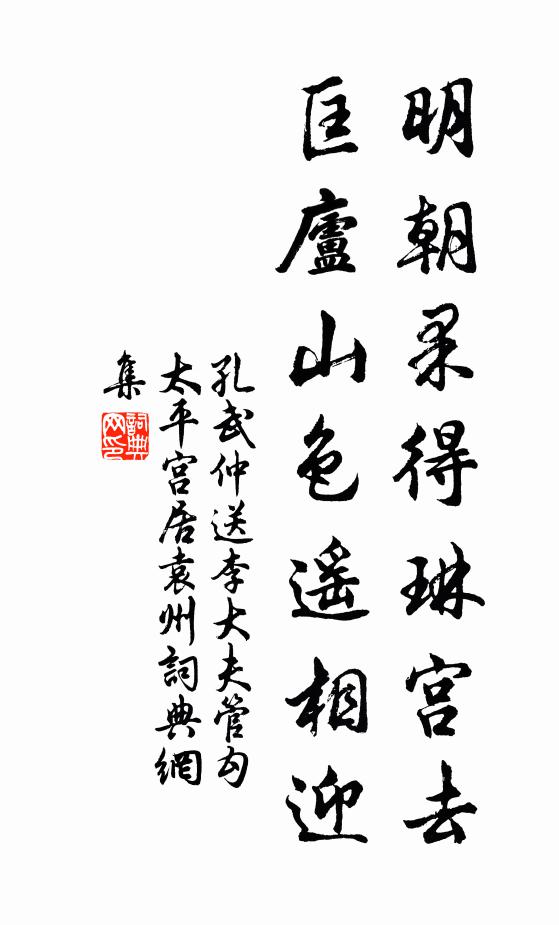 明朝果得琳宫去
匡廬山色遥相迎
孔武仲送李大夫管勾
太平宫居袁州詞典網
集
詞典
网印